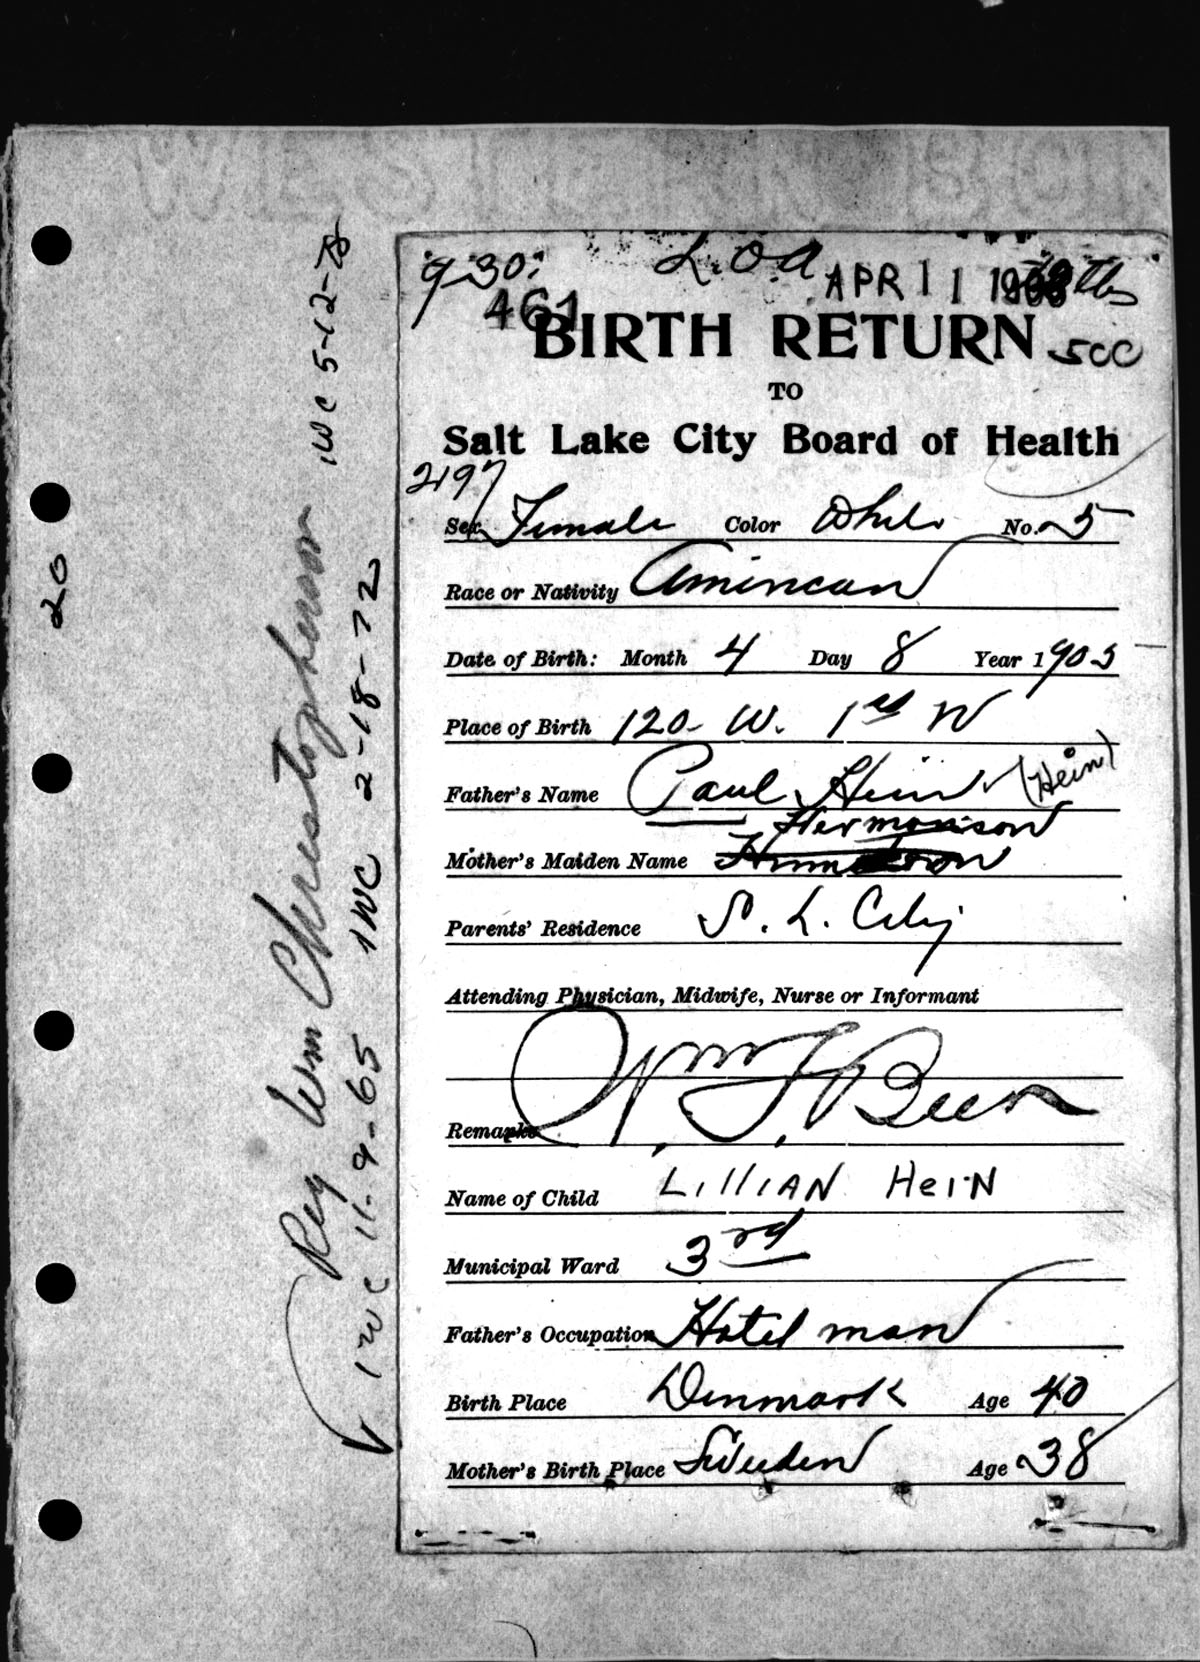 9-30: L.O.A APR 11 1903
461
BIRTH RETURN
TO
Salt Lake City Board of Health
2197
Sex Female Color White No. 5
Race or Nativity American
Date of Birth: Month 4 Day 8 Year 1903
Place of Birth 120 W. 1st N
Father's Name Paul Hein (Hein)
Hermanson
Mother's Maiden Name
Parents' Residence S. L. City
Attending Physician, Midwife, Nurse or Informant
Wm F. Beer
Remarks
Name of Child LILLIAN HEIN
Municipal Ward 3rd
Father's Occupation Hotel man
Birth Place Denmark Age 40
Mother's Birth Place Sweden Age 38
20
Reg Wm Chrestopherson 1WC 5-12-78
1WC 11-9-65 1WC 2-18-72